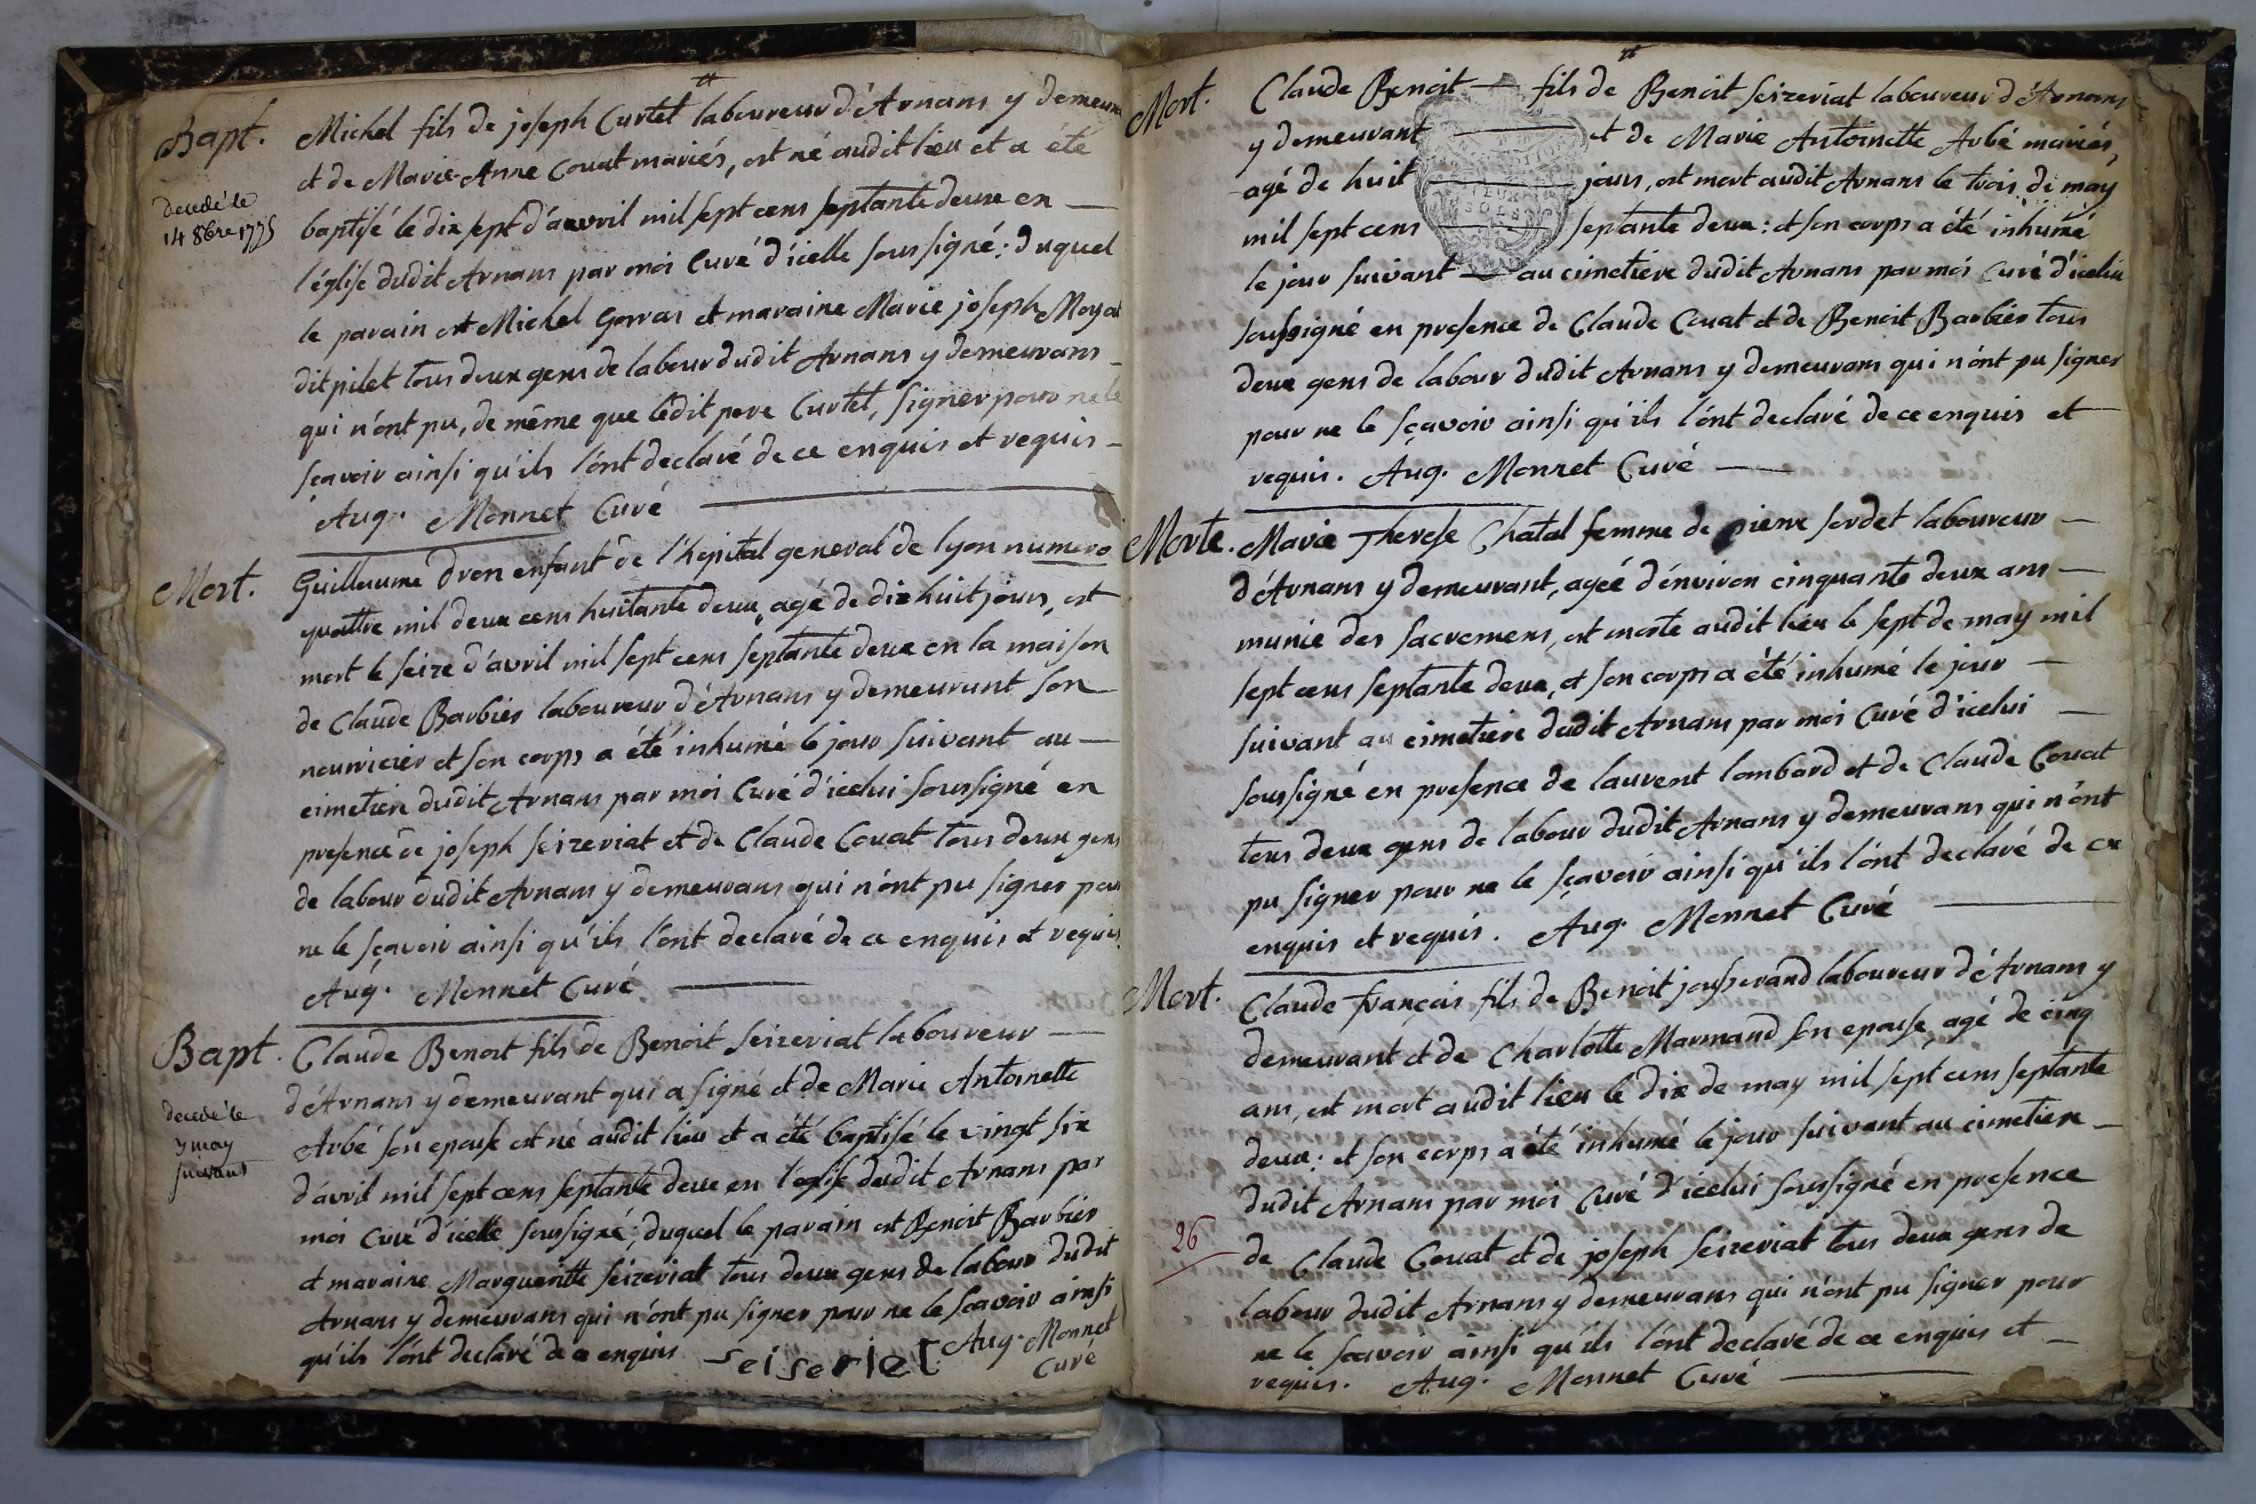 Bapt.
Michel fils de joseph Curtet laboureur d'Arnans y demeurant
et de Marie-Anne Couat mariés, est né audit lieu et a été
decedé le
14 8bre 1775
baptisé le dix sept d'avril mil sept cens septante deux en
l'église dudit Arnans par moi Curé d'icelle soussigné: duquel
le parain est Michel Gorras et maraine Marie joseph Moyat
dit pilet tous deux gens de labour dudit Arnans y demeurans
qui n'ónt pu, de même que ledit pere Curtet, signer pour ne le
sçavoir ainsi qu'ils l'ónt declaré de ce enquis et requis
Aug. Monnet Curé
Mort.
Guillaume dron enfant de l'hôpital general de lyon numero
quattre mil deux cens huitante deux, agé de dix huit jours, est
mort le seize d'avril mil sept cens septante deux en la maison
de Claude Barbier laboureur d'Arnans y demeurant son
nourricier et son corps a été inhumé le jour suivant au
cimetiere dudit Arnans par moi Curé d'icelui soussigné en
presence de joseph seizeriat et de Claude Couat tous deux gens
de labour dudit Arnans y demeurans qui n'ónt pu signer pour
ne le sçavoir ainsi qu'ils l'ónt declaré de ce enquis et requis.
Aug. Monnet Curé
Bapt.
Claude Benoit fils de Benoit seizeriat laboureur
d'Arnans y demeurant qui a signé et de Marie Antoinette
decedé le
3 may
suivant
Arbé son epouse est né audit lieu et a été baptisé le vingt six
d'avril mil sept cens septante deux en l'église dudit Arnans par
moi Curé d'icelle soussigné; duquel le parain est Benoit Barbier
et maraine Margueritte seizeriat tous deux gens de labour dudit
Arnans y demeurans qui n'ónt pu signer pour ne le sçavoir ainsi
qu'ils l'ónt declaré de ce enquis seiseriet Aug. Monnet
Curé
Mort.
Claude Benoit fils de Benoit seizeriat laboureur d'Arnans
y demeurant et de Marie Antoinette Arbé mariés,
agé de huit jours, est mort audit Arnans le trois de may
mil sept cens septante deux: et son corps a été inhumé
le jour suivant au cimetiere dudit Arnans par moi Curé d'icelui
soussigné en presence de Claude Couat et de Benoit Barbier tous
deux gens de labour dudit Arnans y demeurans qui n'ónt pu signer
pour ne le sçavoir ainsi qu'ils l'ónt declaré de ce enquis et
requis. Aug. Monnet Curé
Morte.
Marie Therese Chatal femme de pierre sordet laboureur
d'Arnans y demeurant, agée d'énviron cinquante deux ans
munie des sacremens, est morte audit lieu le sept de may mil
sept cens septante deux, et son corps a été inhumé le jour
suivant au cimetiere dudit Arnans par moi Curé d'icelui
soussigné en presence de laurent lombard et de Claude Couat
tous deux gens de labour dudit Arnans y demeurans qui n'ónt
pu signer pour ne le sçavoir ainsi qu'ils l'ónt declaré de ce
enquis et requis. Aug. Monnet Curé
Mort.
Claude françois fils de Benoit josserand laboureur d'Arnans y
demeurant et de Charlotte Marmand son epouse, agé de cinq
ans, est mort audit lieu le dix de may mil sept cens septante
deux: et son corps a été inhumé le jour suivant au cimetiere
dudit Arnans par moi Curé d'icelui soussigné en presence
26
de Claude Couat et de joseph seizeriat tous deux gens de
labour dudit Arnans y demeurans qui n'ónt pu signer pour
ne le sçavoir ainsi qu'ils l'ónt declaré de ce enquis et
requis. Aug. Monnet Curé